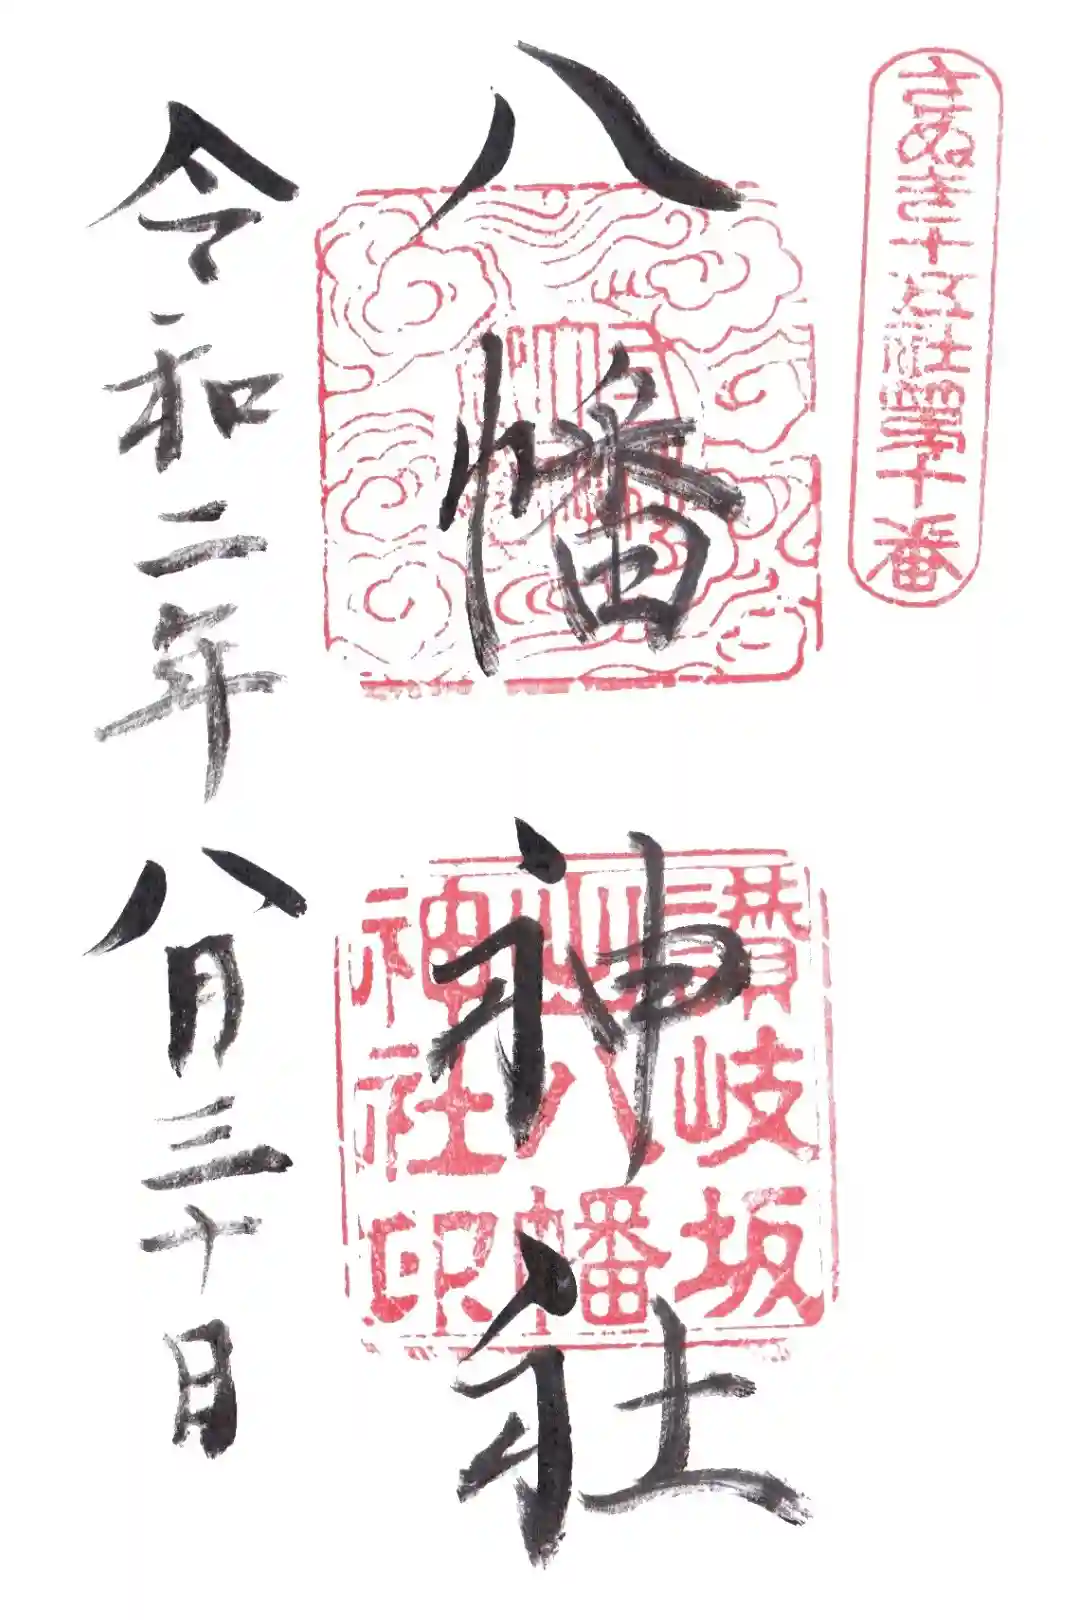 さぬき十五社第十番
八幡神社
讃岐坂
山八幡
神社印
令和二年八月三十日